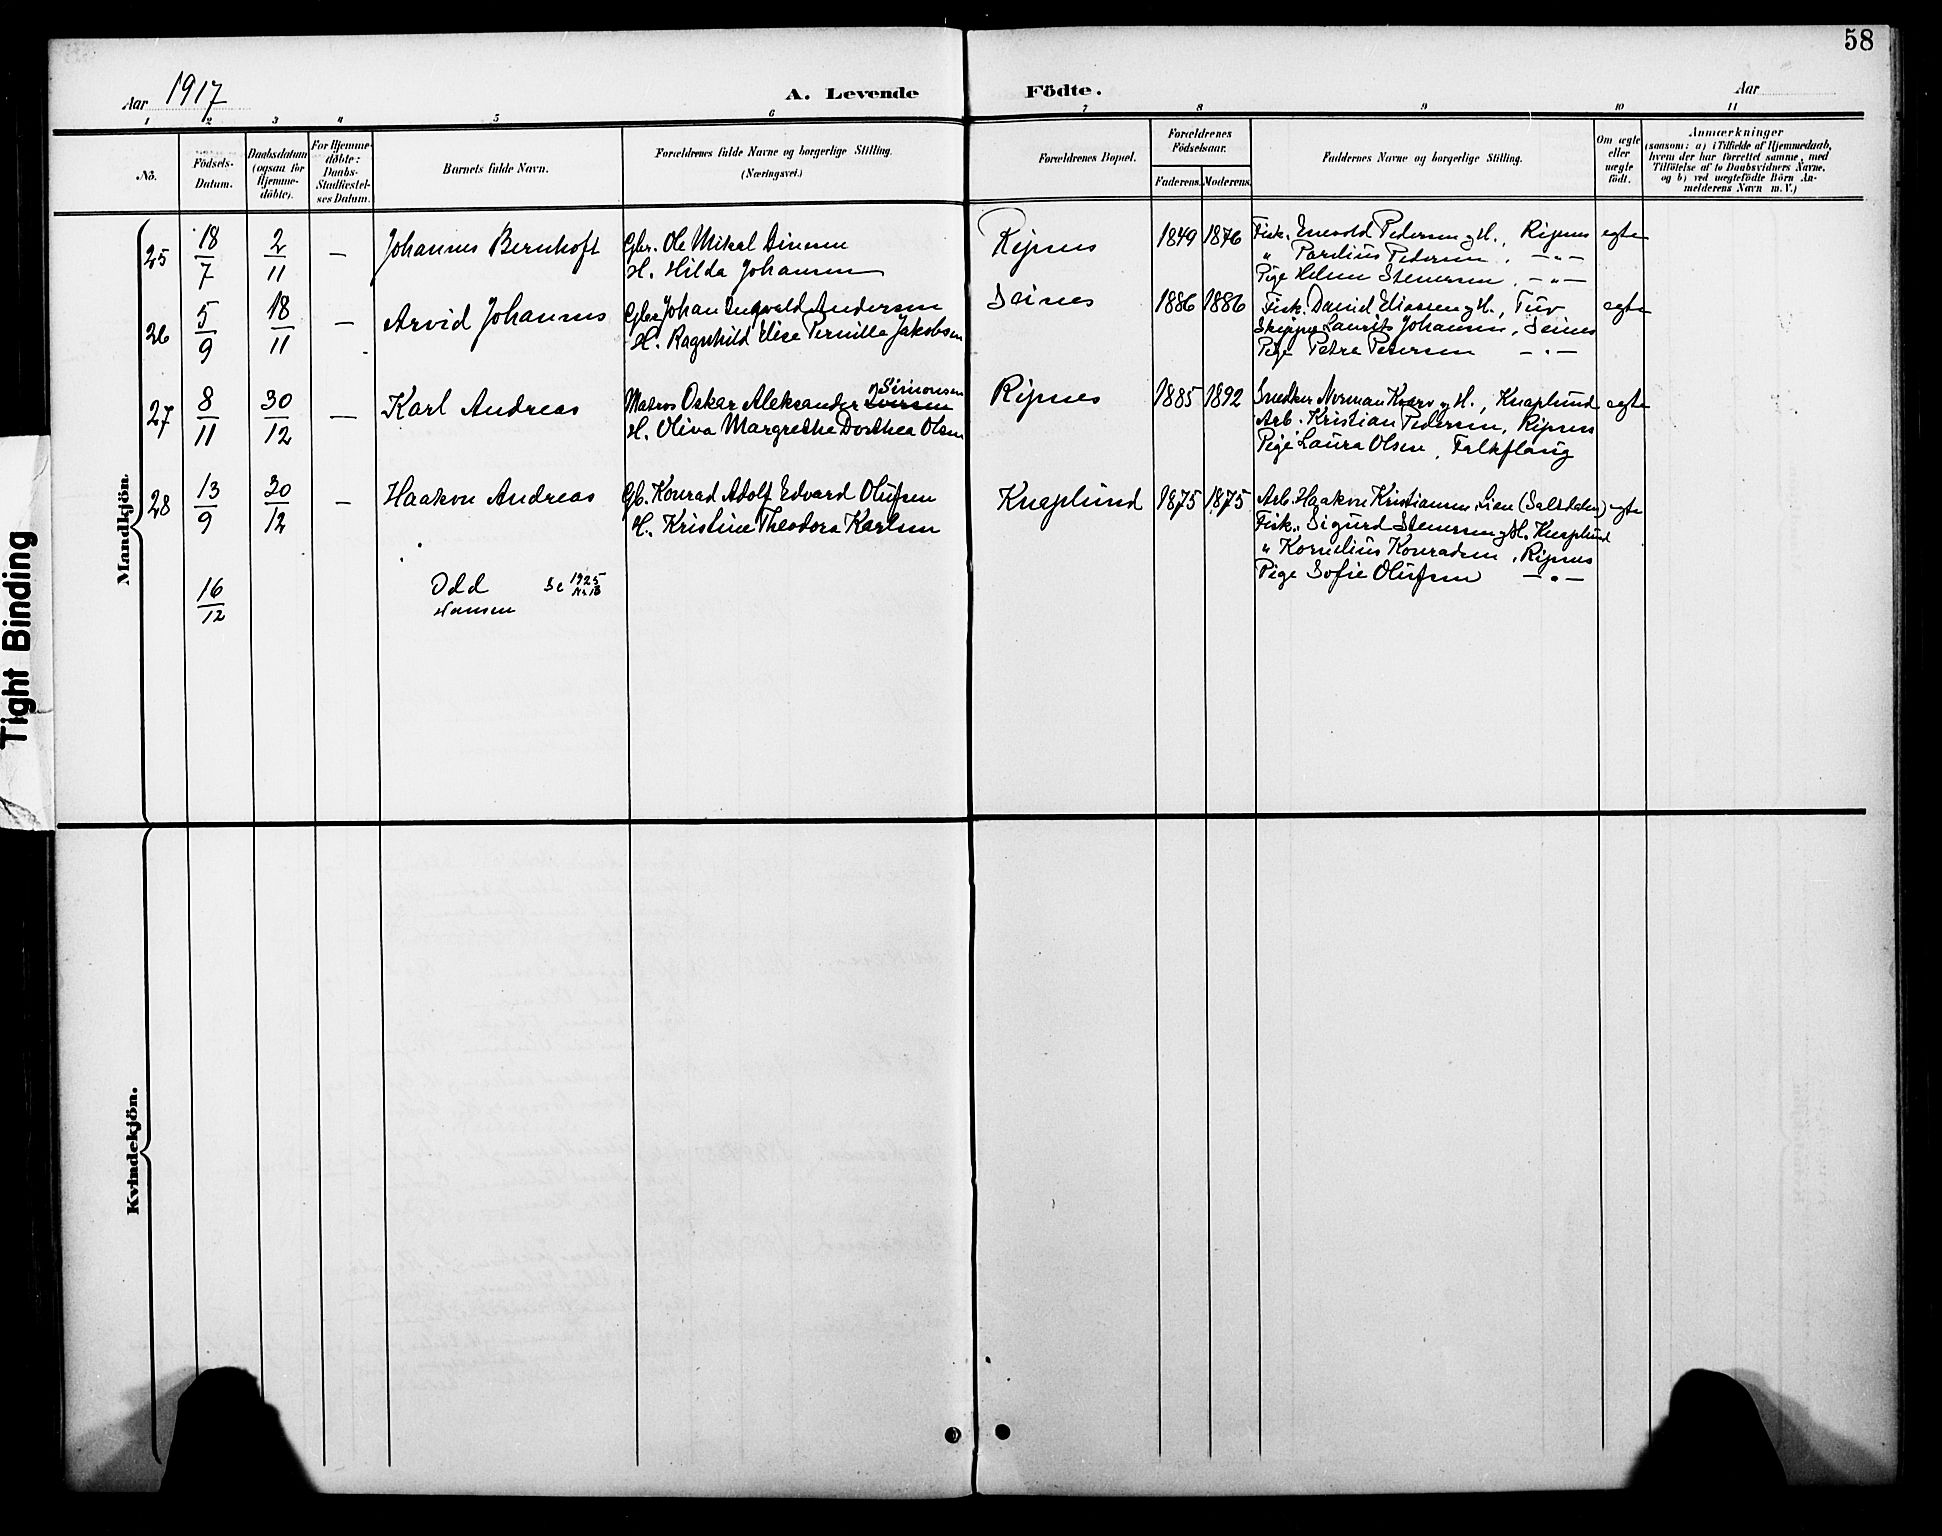 58
Aar 1917
A. Levende Födte.
Aar
1 2 3 4 5 6 7 8 9 10 11
No.
Födsels-Datum.
Daabsdatum (ogsaa for Hjemme-döbte).
For Hjemme-döbte: Daabs-Stadfæstel-ses Datum.
Barnets fulde Navn.
Forældrenes fulde Navne og borgerlige Stilling. (Næringsvei.)
Forældrenes Bopæl.
Forældrenes Födselsaar.
Faderens. Moderens.
Faddernes Navne og borgerlige Stilling.
Om ægte eller uægte født.
Anmærkninger
(saasom: a) i Tilfælde af Hjemmedaab, hvem der har forrettet samme, med Tilföielse af to Daabsvidners Navne, og b) ved uægtefödte Börn An-melderens Navn m. V.)
Mandkjön.
25 18/7 2/11 — Johannes Bernhoft Gbr. Ole Mikal Dinesen
H. Hilda Johansen
Ripnes 1849 1876 Fisk. Enevold Pedersen og H., Ripnes egte
" Pareliús Pedersen, — " —
Pige Helene Stenersen, — " —
26 5/9 18/11 — Arvid Johannes Gbr. Johan Ingvald Andersen
H. Ragnhild Elise Pernille Jakobsen
Seines 1886 1886 Fisk. David Eliassen og H., Tuv egte
Skipper Laurits Johansen, Seines
Pige Petra Petersen — " —
27 8/11 30/12 — Karl Andreas Matros Oskar Aleksander Iversen Simonsen
H. Oliva Margrethe Dorthea Olsen
Ripnes 1885 1892 Snedker Norman Kverv og H., Knaplund egte
Arb. Kristian Pedersen, Ripnes
Pige Laura Olsen, Falkflaug
28 13/9 30/12 — Haakon Andreas Gb. Konrad Adolf Edvard Olufsen
H. Kristine Theodora Karlsen
Knaplund 1875 1875 Arb. Haakon Kristiansen, Lian (Saltdalen) egte
Fisk. Sigurd Stenersen og H. Knaplund
" Kornelius Konradsen, Ripnes
Pige Sofie Olufsen — " —
16/12 Odd Hansen Se 1925 Nr 18
Kvindekjön.
Tight Binding